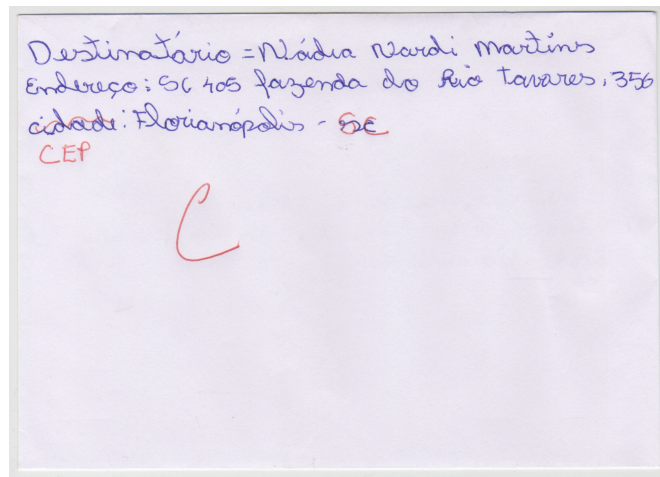 Destinatário = Nádia Nardi Martins
Endereço: SC 405 fazenda do Rio Tavares, 356
cidade: Florianópolis - SC
CEP
C